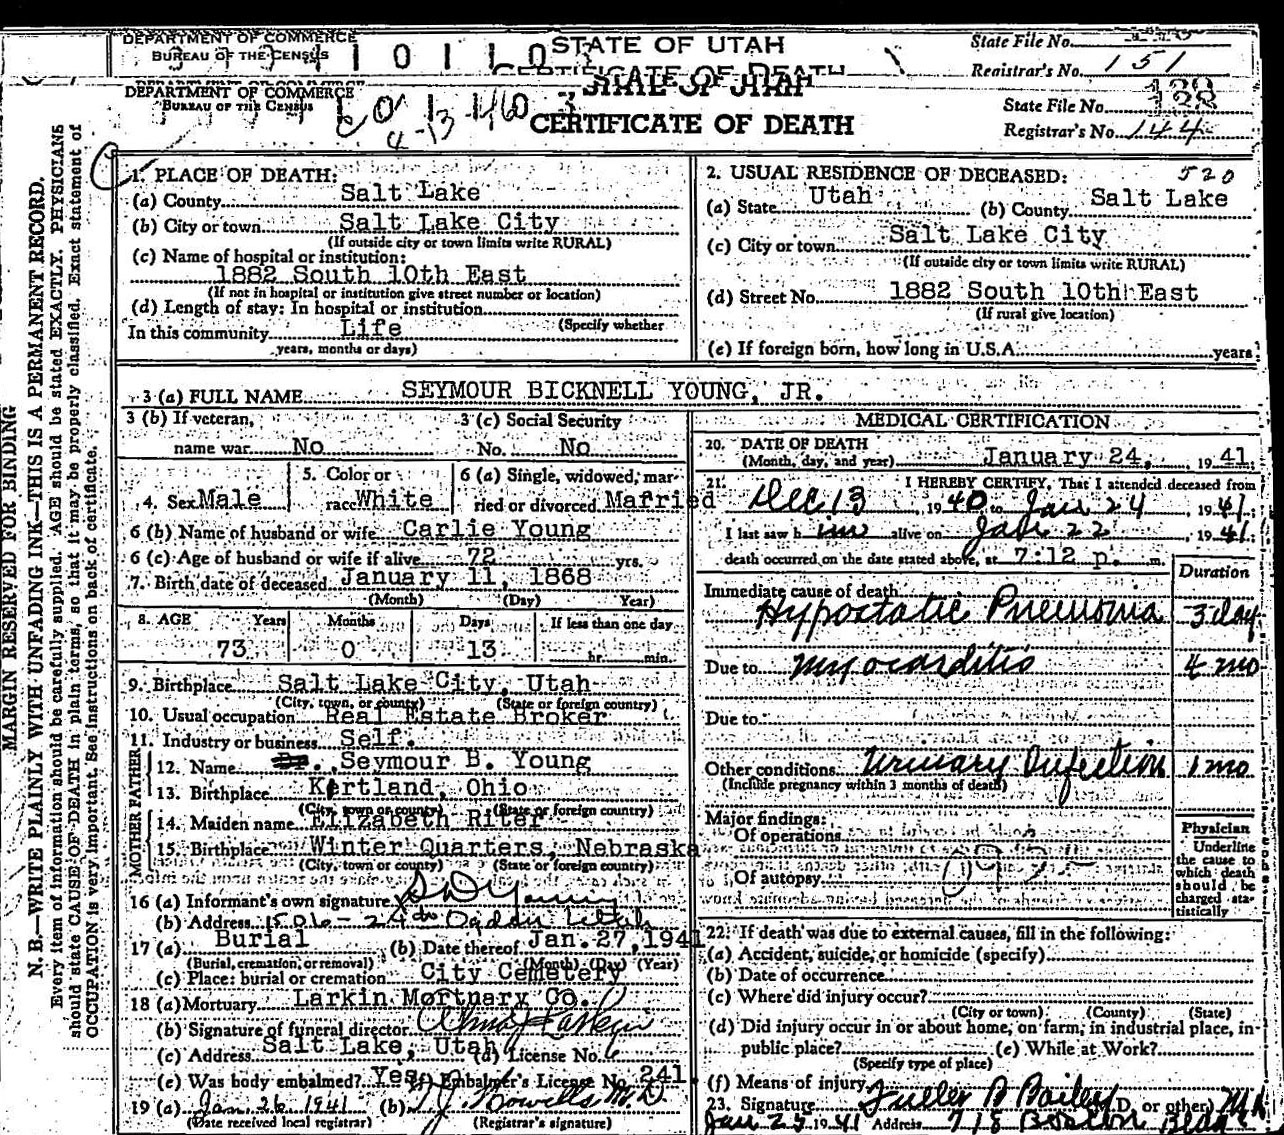 DEPARTMENT OF COMMERCE
BUREAU OF THE CENSUS
STATE OF UTAH
CERTIFICATE OF DEATH
State File No.
Registrar's No. 151
DEPARTMENT OF COMMERCE
BUREAU OF THE CENSUS
STATE OF UTAH
CERTIFICATE OF DEATH
State File No. 122
Registrar's No. 144
MARGIN RESERVED FOR BINDING
N. B.—WRITE PLAINLY WITH UNFADING INK—THIS IS A PERMANENT RECORD.
Every item of information should be carefully supplied. AGE should be stated EXACTLY. PHYSICIANS
should state CAUSE OF DEATH in plain terms, so that it may be properly classified. Exact statement of
OCCUPATION is very important. See instructions on back of certificate.
1. PLACE OF DEATH:
(a) County Salt Lake
(b) City or town Salt Lake City
(If outside city or town limits write RURAL)
(c) Name of hospital or institution:
1882 South 10th East
(If not in hospital or institution give street number or location)
(d) Length of stay: In hospital or institution
(Specify whether
In this community Life
years, months or days)
2. USUAL RESIDENCE OF DECEASED: 520
(a) State Utah (b) County Salt Lake
(c) City or town Salt Lake City
(If outside city or town limits write RURAL)
(d) Street No. 1882 South 10th East
(If rural give location)
(e) If foreign born, how long in U.S.A. years
3 (a) FULL NAME SEYMOUR BICKNELL YOUNG, JR.
3 (b) If veteran, name war No
3 (c) Social Security No. No
4. Sex Male
5. Color or race White
6 (a) Single, widowed, married or divorced Married
6 (b) Name of husband or wife Carlie Young
6 (c) Age of husband or wife if alive 72 yrs.
7. Birth date of deceased January 11, 1868
(Month) (Day) Year)
8. AGE Years Months Days If less than one day
73 0 13 hr. min.
9. Birthplace Salt Lake City, Utah
(City, town, or county) (State or foreign country)
10. Usual occupation Real Estate Broker
11. Industry or business Self.
FATHER
12. Name Seymour B. Young
13. Birthplace Kirtland, Ohio
(City, town or county) (State or foreign country)
MOTHER
14. Maiden name Elizabeth Riter
15. Birthplace Winter Quarters, Nebraska
(City, town or county) (State or foreign country)
16 (a) Informant's own signature S D Young
(b) Address 1506 - 24th Ogden Utah
17 (a) Burial (b) Date thereof Jan. 27, 1941
(Burial, cremation, or removal) (Month) (Day) (Year)
(c) Place: burial or cremation City Cemetery
18 (a) Mortuary Larkin Mortuary Co.
(b) Signature of funeral director Alma J Larkin
(c) Address Salt Lake, Utah (d) License No. 6
(e) Was body embalmed? Yes (f) Embalmer's License No. 241.
19 (a) Jan. 26 1941 (b) T J Howells M D
(Date received local registrar) (Registrar's signature)
MEDICAL CERTIFICATION
20. DATE OF DEATH
(Month, day, and year) January 24, 1941
21. I HEREBY CERTIFY, That I attended deceased from
Dec 13, 1940 to Jan 24, 1941.
I last saw him alive on Jan 22, 1941.
death occurred on the date stated above, at 7:12 p. m.
Duration
Immediate cause of death
Hypostatic Pneumonia 3 day
Due to Myocarditis 4 mo
Due to
Other conditions Urinary Infection 1 mo
(Include pregnancy within 3 months of death)
Major findings:
Of operations
Of autopsy
Physician
Underline
the cause to
which death
should be
charged sta-
tistically
22. If death was due to external causes, fill in the following:
(a) Accident, suicide, or homicide (specify)
(b) Date of occurrence
(c) Where did injury occur?
(City or town) (County) (State)
(d) Did injury occur in or about home, on farm, in industrial place, in-
public place? (e) While at Work?
(Specify type of place)
(f) Means of injury
23. Signature Fuller B Bailey (M.D. or other) M.D.
Jan 25, 1941 Address 718 Boston Bldg